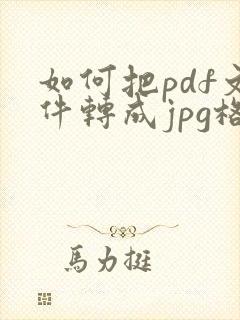 如何把pdf文
件轉成jpg格
馬力挺